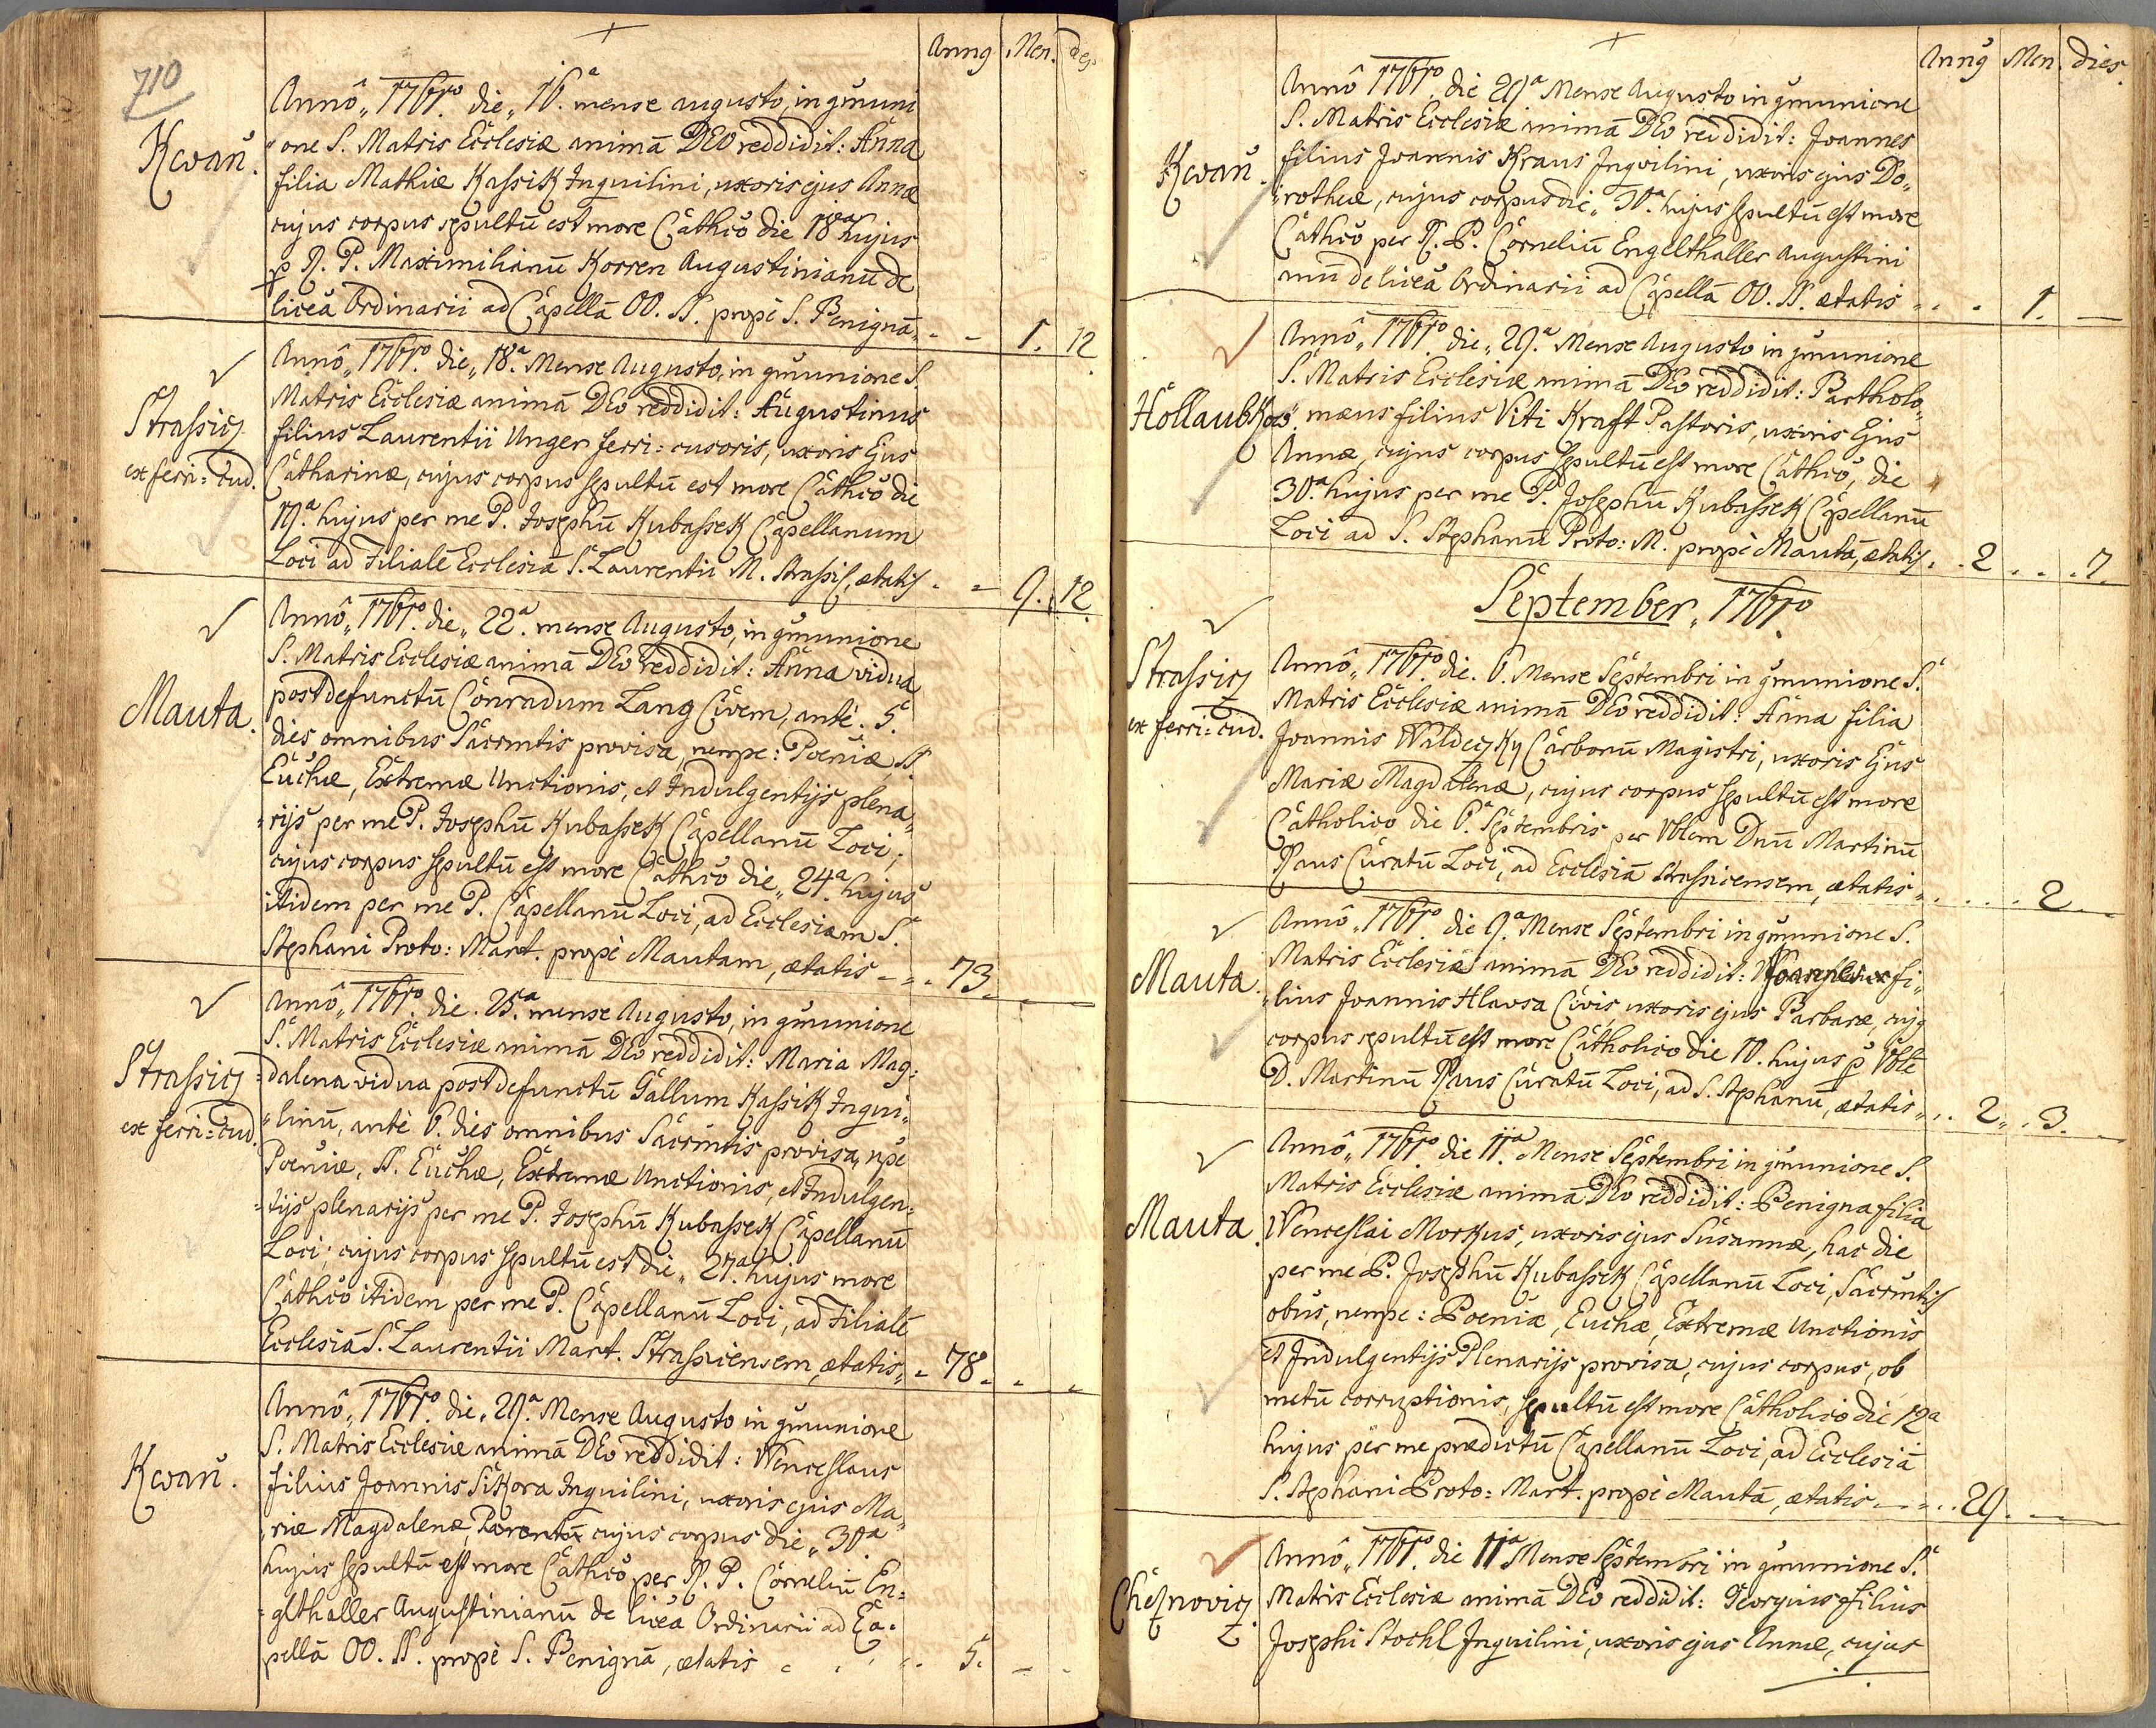 710
Annꝰ Men. des
Kwaň.
Annô„ 1761mo. die„ 16.a mense augusto, in c̄muni
„one S. Matris Ecclesiæ animā DEo reddidit: Anna
filia Mathiæ Kassik Inquilini, uxoris ejus Annæ
cujus corpus sepultū est more Cathc̄o die 18va hujus
p R. P. Maximilianū Korren Augustinianū de
liceā Ordinarii ad Capellā OO. SS. propè S. Benignā„ - - 1. 12
Strassicz
ex ferri=cud.
Annô„ 1761mo. die„ 18.a Mense Augusto, in c̄munione S.
Matris Ecclesiæ animā DEo reddidit: Augustinus
filius Laurentii Unger ferri=cusoris, uxoris Ejus
Catharinæ, cujus corpus sepultū est more Cathc̄o die
19.a hujus per me P. Josephū Kubassek Capellanum
Loci ad Filialē Ecclesiā S. Laurentii M. Strassic, ætatis - - 9. 12.
Mauta.
Annô„ 1761mo. die„ 22a. mense Augusto, in c̄munione
S. Matris Ecclesiæ animā DEo reddidit: Anna vidua
post defunctū Conradum Lang Civem, antè . 5.
dies omnibus Sacrmtis provisa, nempe: Poeniæ, SS.
Euchæ, Extremæ Unctionis, et Indulgentijs plena„
„rijs per me P. Josephū Kubassek Capellanū Loci;
cujus corpus sepultū est more Cathc̄o die„ 24a. hujus
itidem per me P. Capellanū Loci, ad Ecclesiam S.
Stephani Proto: Mart. propè Mautam, ætatis - - . 73.
Strassicz
ex ferri=cud.
Annô„ 1761mo. die . 25.a mense Augusto, in c̄munione
S. Matris Ecclesiæ animā DEo reddidit: Maria Mag=
=dalena vidua post defunctū Gallum Kassik Inqui„
„linū, antè 6. dies omnibus Sacrmtis provisa, npe
Poeniæ, SS. Euchæ, Extremæ Unctionis, et Indulgen=
=tijs plenarijs per me P. Josephū Kubassek Capellanū
Loci; cujus corpus sepultū est die„ 27.a hujus more
Cathc̄o itidem per me P. Capellanū Loci, ad Filialē
Ecclesiā S. Laurentii Mart. Strassicensem, ætatis„ - 78.
Kwaň.
Annô„ 1761mo. die„ 29.a Mense Augusto in c̄munione
S. Matris Ecclesiæ animā DEo reddidit: Wenceslaus
filius Joannis Sikora Inquilini, uxoris ejus Ma„
„riæ Magdalenæ, Parentū cujus corpus die„ 30a
hujus sepultū est more Cathc̄o per R. P. Corneliū En=
=glthaller Augustinianū de liceā Ordinarii ad Ca=
pellā OO. SS. propè S. Benignā, ætatis - . . . . 5. -
Annꝰ Men. dies
Kwaň.
Annô 1761mo. die 29a Mense Augusto in c̄munione
S. Matris Ecclesiæ animā DEo reddidit: Joannes
filius Joannis Kraus Inqvilini, uxoris ejus Do„
„rotheæ, cujus corpus die„ 30.a hujus sepultū est more
Cathc̄o per R. P. Corneliū Engelthaller Augustini
anū de liceā Ordinarii ad Capellā OO. SS. ætatis - . . 1. -
Hollaubkow
Annô„ 1761mo. die„ 29.a Mense Augusto in c̄munione
S. Matris Ecclesiæ animā DEo reddidit: Bartholo„
„mæus filius Viti Kraft Pastoris, uxoris Ejus
Annæ, cujus corpus sepultū est more Cathc̄o, die
30.a hujus per me P. Josephū Kubassek Capellanū
Loci ad S. Stephanū Proto: M. propè Mautā, ætatis . . 2 . . . 7.
September, 1761mo.
Strassicz
ex ferri=cud.
Annô„ 1761mo die. 6. Mense Septembri in c̄munione S.
Matris Ecclesiæ animā DEo reddidit: Anna filia
Joannis Waldeczky Carbonū Magistri, uxoris Ejus
Mariæ Magdalenæ, cujus corpus sepultū est more
Catholico die 6. Septembris per Vblem Dnū Martinū
Raus Curatū Loci, ad Ecclesiā Strassicensem, ætatis - . . . . 2.
Mauta.
Annô„ 1761mo. die 9.a Mense Septembri in c̄munione S.
Matris Ecclesiæ animā DEo reddidit: Joannes fi„
„lius Joannis Hlavsa Civis, uxoris ejus Barbaræ, cujꝰ
corpus sepultū est more Catholico die 10. hujus p Vblē
D. Martinū Raus Curatū Loci, ad S. Stephanū, ætatis„ . . 2. . 3.
Mauta.
Annô„ 1761mo die 11.a Mense Septembri in c̄munione S.
Matris Ecclesiæ animā DEo reddidit: Benigna filia
Wenceslai Morkus, uxoris ejus Susannæ, hac die
per me P. Josephū Kubassek Capellanū Loci, Sacrmtis
obus, nempe: Poeniæ, Euchæ, Extremæ Unctionis
et Indulgentijs Plenarijs provisa, cujus corpus, ob
metū corruptionis, sepultū est more Catholico die 12a
hujus per me prædictū Capellanū Loci, ad Ecclesiā
S. Stephani Proto: Mart. propè Mautā, ætatis - - . . 29.
Cheznovicz
Annô„ 1761mo. die 11a Mense Septembri in c̄munione S.
Matris Ecclesiæ animā DEo reddidit: Georgius filius
Josephi Stochl Inquilini, uxoris ejus Annæ, cujus